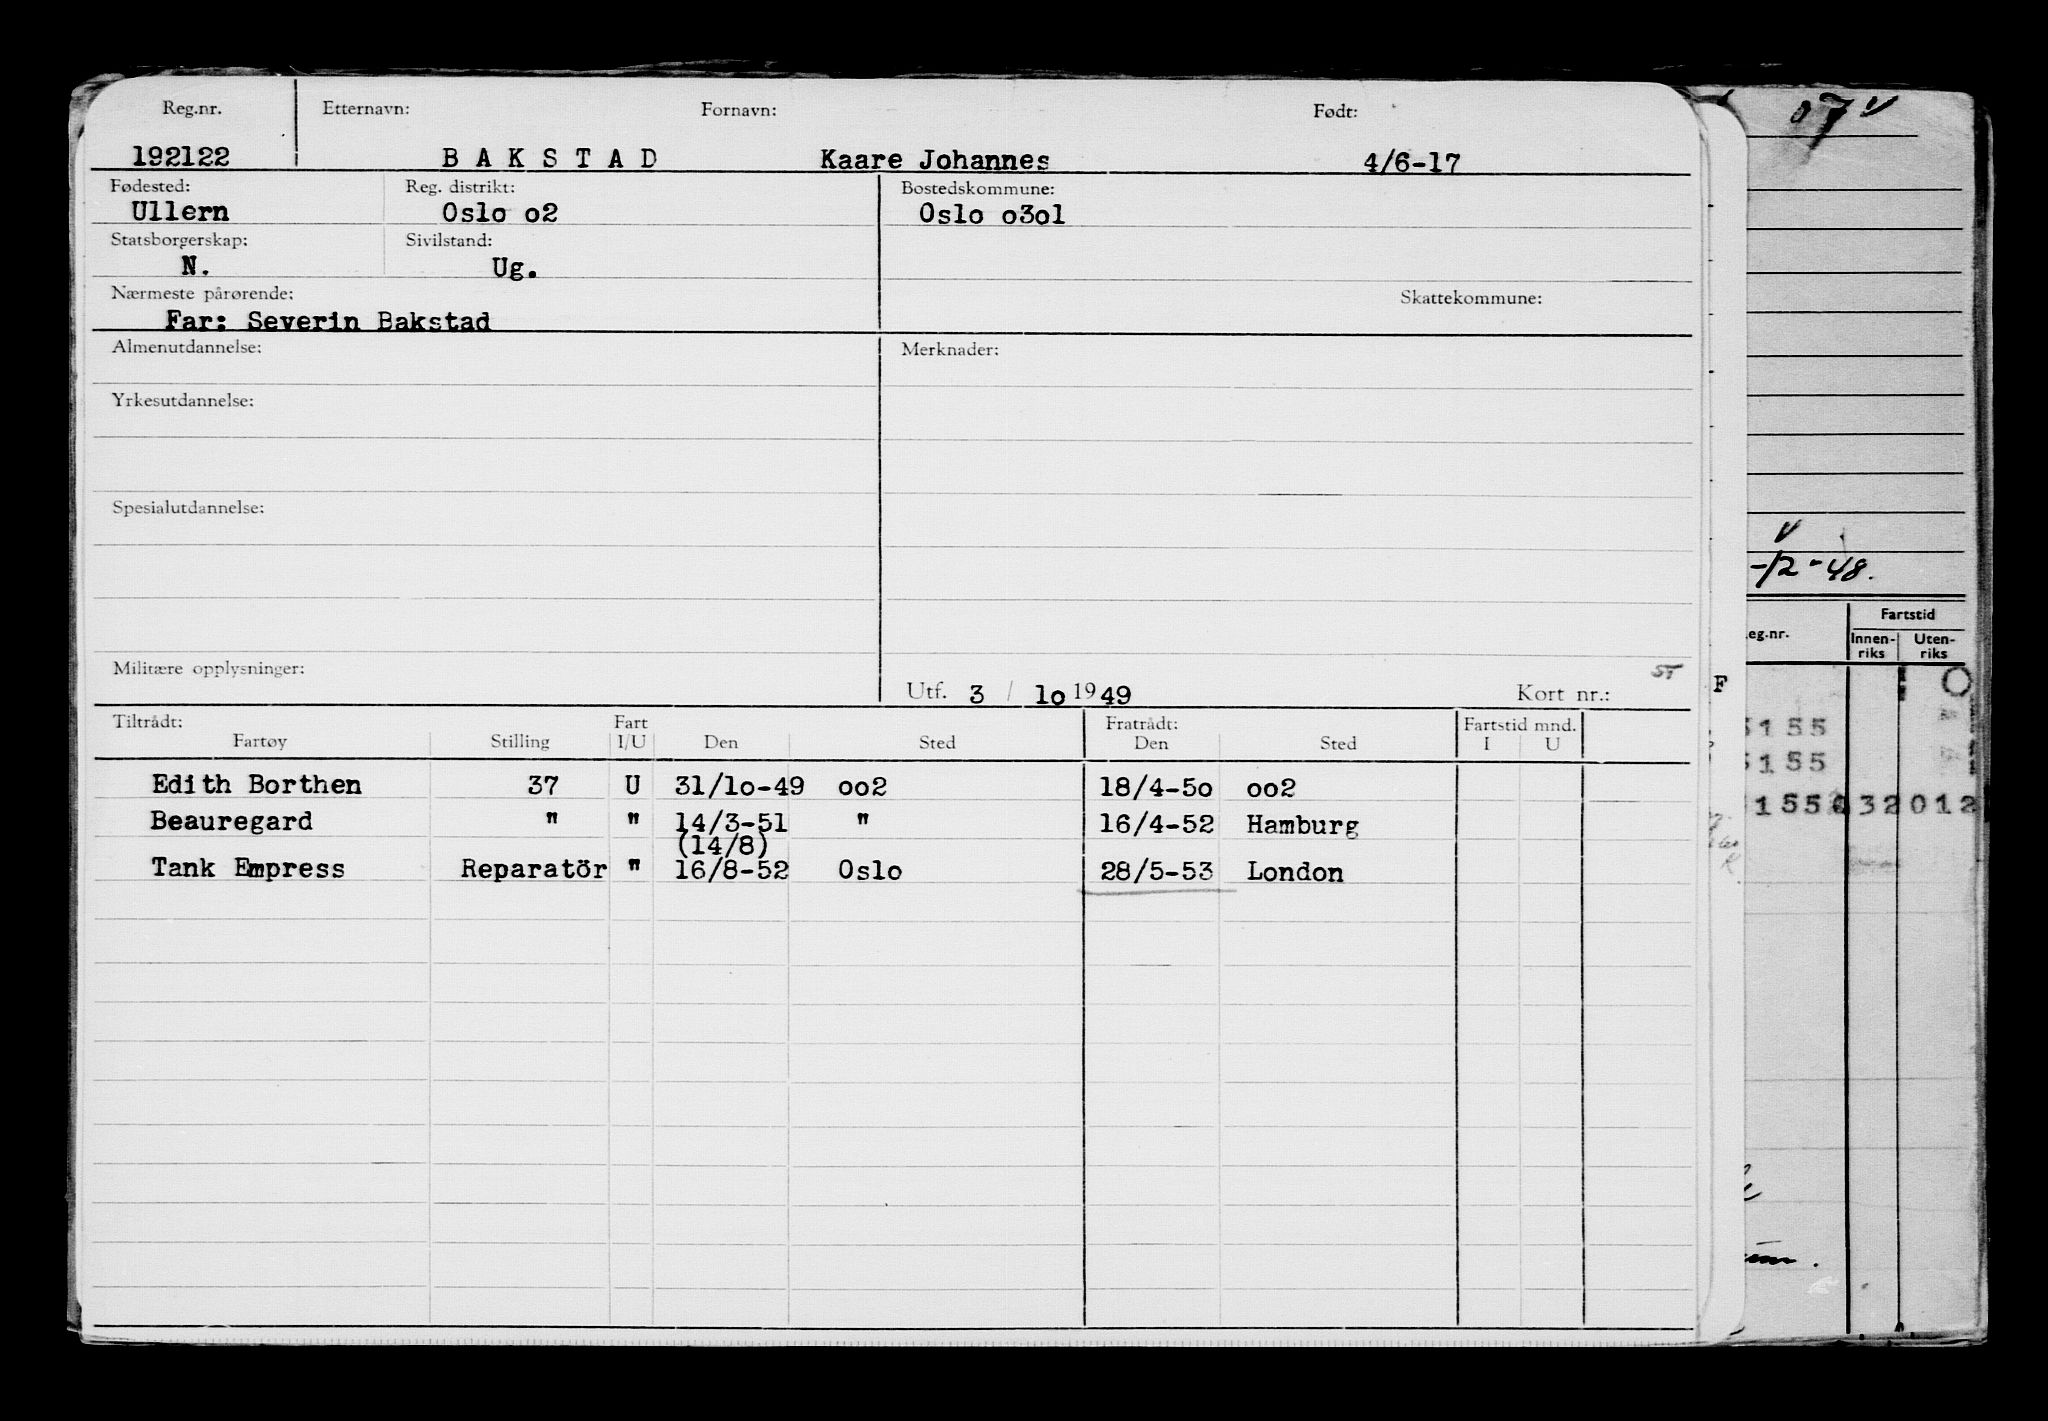 Reg.nr. Etternavn: Fornavn: Født:
192122 B A K S T A D Kaare Johannes 4/6-17
Fødested: Reg. distrikt: Bostedskommune:
Ullern Oslo o2 Oslo o3o1
Statsborgerskap: Sivilstand:
N. Ug.
Nærmeste pårørende: Skattekommune:
Far: Severin Bakstad
Almenutdannelse: Merknader:
Yrkesutdannelse:
Spesialutdannelse:
Militære opplysninger:
Utf. 3 / 1o 1949 Kort nr.:
Tiltrådt: Fart Fratrådt: Fartstid mnd.
Fartøy Stilling I/U Den Sted Den Sted I U
Edith Borthen 37 U 31/1o-49 oo2 18/4-5o oo2
Beauregard " " 14/3-51 " 16/4-52 Hamburg
(14/8)
Tank Empress Reparatör " 16/8-52 Oslo 28/5-53 London
F
07 V
V
-12-48.
eg.nr. Fartstid
Innen-riks Uten-riks
5155
5155
32012